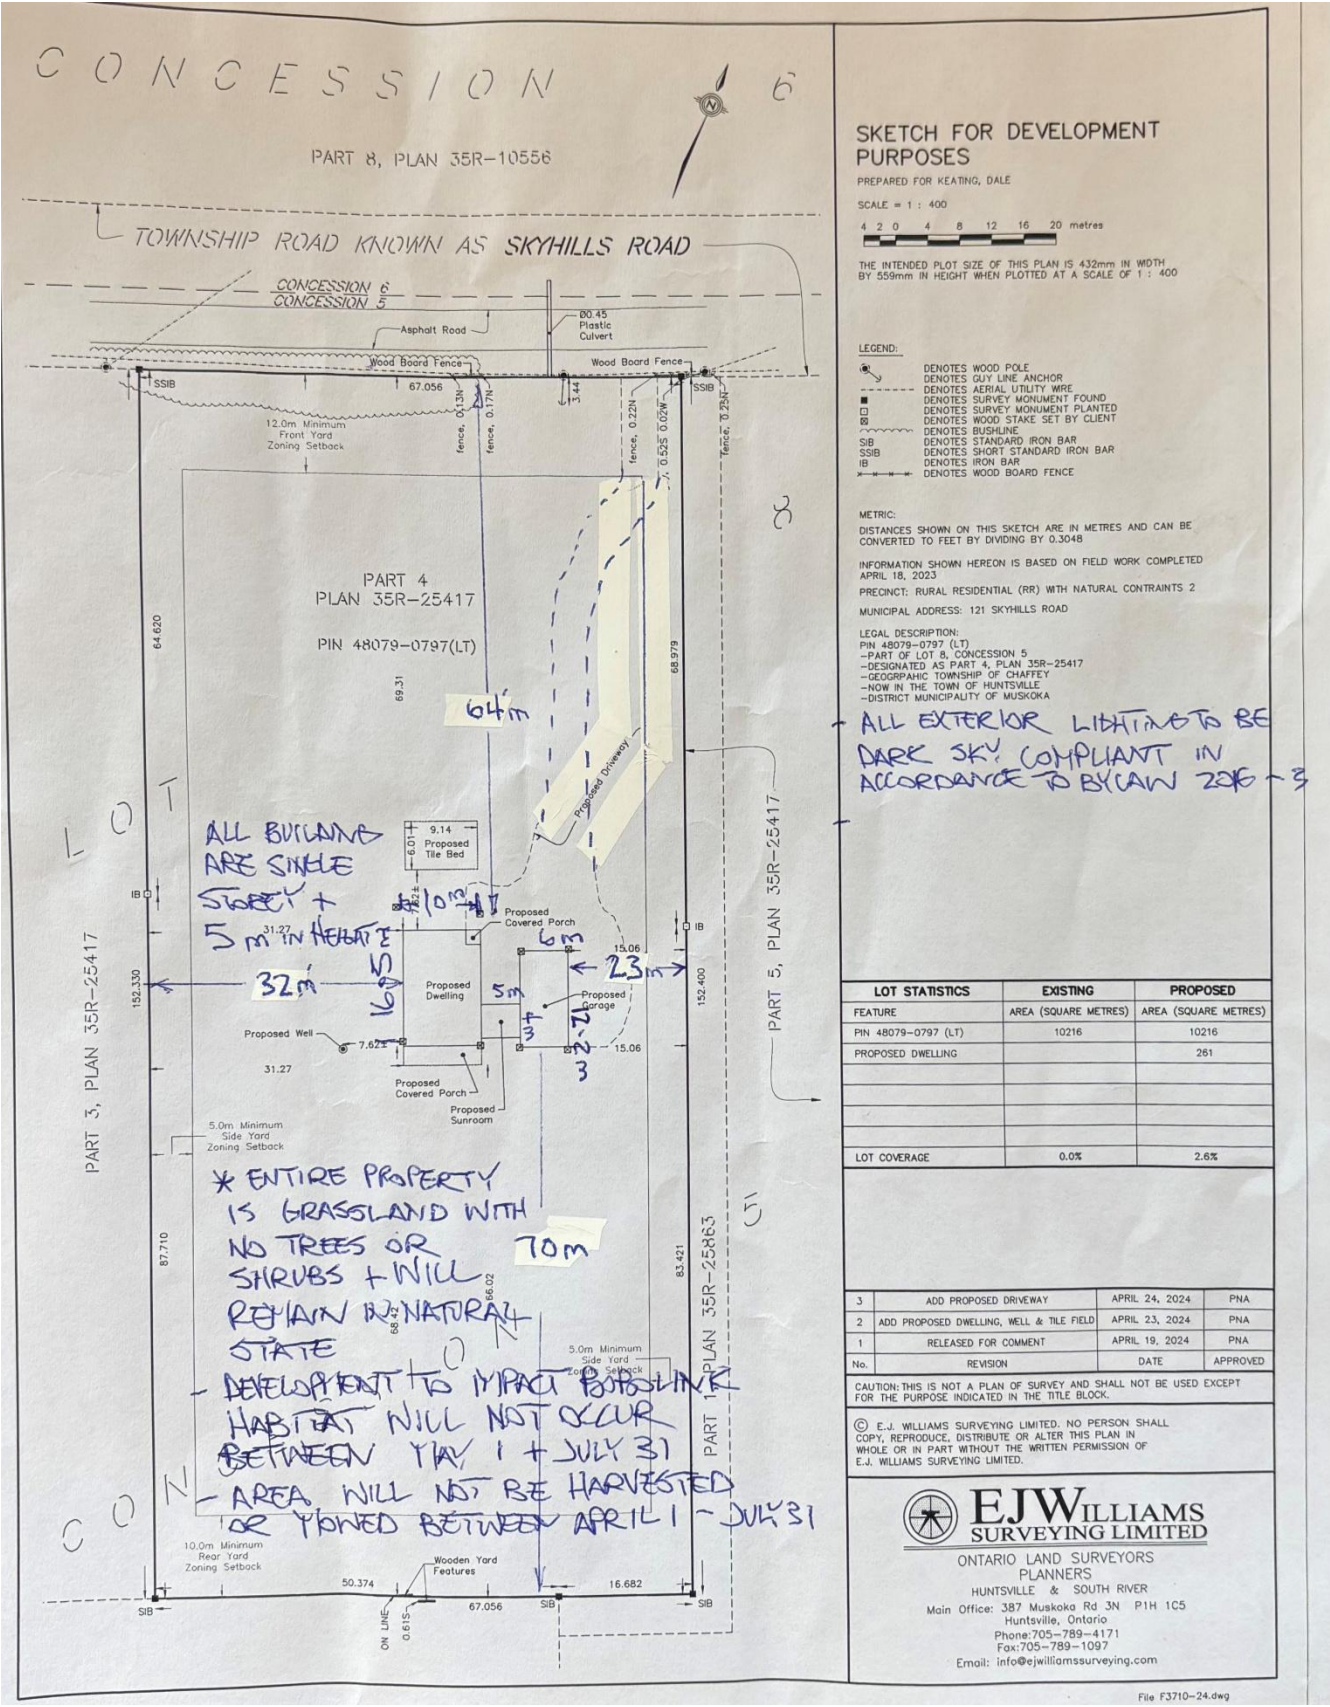 CONCESSION 6
PART 8, PLAN 35R-10556
N
TOWNSHIP ROAD KNOWN AS SKYHILLS ROAD
CONCESSION 6
CONCESSION 5
Asphalt Road
Ø0.45
Plastic
Culvert
Wood Board Fence
Wood Board Fence
SSIB
67.056
3.44
SSIB
fence, 0.13N
fence, 0.17N
fence, 0.22N
0.52S 0.02W
fence, 0.25N
12.0m Minimum
Front Yard
Zoning Setback
8
PART 4
PLAN 35R-25417
PIN 48079-0797(LT)
64.620
69.31
68.979
64m
Proposed Driveway
LOT
ALL BUILDING
ARE SINGLE
STOREY +
5 m IN HEIGHT
9.14
6.01
Proposed
Tile Bed
7.62±
10m
IB
IB
Proposed
Covered Porch
31.27
6m
15.06
32m
16.05
23m
Proposed
Dwelling
5m
Proposed
Garage
Proposed Well
7.62±
15.06
31.27
Proposed
Covered Porch
Proposed
Sunroom
152.330
152.400
PART 3, PLAN 35R-25417
PART 5, PLAN 35R-25417
5.0m Minimum
Side Yard
Zoning Setback
* ENTIRE PROPERTY
IS GRASSLAND WITH
NO TREES OR
SHRUBS + WILL
REMAIN IN NATURAL
STATE
70m
87.710
68.42
66.02
83.421
5
PART 1, PLAN 35R-25863
5.0m Minimum
Side Yard
Zoning Setback
- DEVELOPMENT TO IMPACT BOBOLINK
HABITAT WILL NOT OCCUR
BETWEEN MAY 1 + JULY 31
- AREA WILL NOT BE HARVESTED
OR MOWED BETWEEN APRIL 1 - JULY 31
CON
10.0m Minimum
Rear Yard
Zoning Setback
Wooden Yard
Features
50.374
16.682
SIB
ON LINE
0.61S
67.056
SIB
SIB
SKETCH FOR DEVELOPMENT
PURPOSES
PREPARED FOR KEATING, DALE
SCALE = 1 : 400
4 2 0 4 8 12 16 20 metres
THE INTENDED PLOT SIZE OF THIS PLAN IS 432mm IN WIDTH
BY 559mm IN HEIGHT WHEN PLOTTED AT A SCALE OF 1 : 400
LEGEND:
DENOTES WOOD POLE
DENOTES GUY LINE ANCHOR
DENOTES AERIAL UTILITY WIRE
DENOTES SURVEY MONUMENT FOUND
DENOTES SURVEY MONUMENT PLANTED
DENOTES WOOD STAKE SET BY CLIENT
DENOTES BUSHLINE
SIB DENOTES STANDARD IRON BAR
SSIB DENOTES SHORT STANDARD IRON BAR
IB DENOTES IRON BAR
DENOTES WOOD BOARD FENCE
METRIC:
DISTANCES SHOWN ON THIS SKETCH ARE IN METRES AND CAN BE
CONVERTED TO FEET BY DIVIDING BY 0.3048
INFORMATION SHOWN HEREON IS BASED ON FIELD WORK COMPLETED
APRIL 18, 2023
PRECINCT: RURAL RESIDENTIAL (RR) WITH NATURAL CONTRAINTS 2
MUNICIPAL ADDRESS: 121 SKYHILLS ROAD
LEGAL DESCRIPTION:
PIN 48079-0797 (LT)
-PART OF LOT 8, CONCESSION 5
-DESIGNATED AS PART 4, PLAN 35R-25417
-GEOGRPAHIC TOWNSHIP OF CHAFFEY
-NOW IN THE TOWN OF HUNTSVILLE
-DISTRICT MUNICIPALITY OF MUSKOKA
- ALL EXTERIOR LIGHTING TO BE
DARK SKY COMPLIANT IN
ACCORDANCE TO BYLAW 2016 - 3
LOT STATISTICS EXISTING PROPOSED
FEATURE AREA (SQUARE METRES) AREA (SQUARE METRES)
PIN 48079-0797 (LT) 10216 10216
PROPOSED DWELLING 261
LOT COVERAGE 0.0% 2.6%
3 ADD PROPOSED DRIVEWAY APRIL 24, 2024 PNA
2 ADD PROPOSED DWELLING, WELL & TILE FIELD APRIL 23, 2024 PNA
1 RELEASED FOR COMMENT APRIL 19, 2024 PNA
No. REVISION DATE APPROVED
CAUTION: THIS IS NOT A PLAN OF SURVEY AND SHALL NOT BE USED EXCEPT
FOR THE PURPOSE INDICATED IN THE TITLE BLOCK.
© E.J. WILLIAMS SURVEYING LIMITED. NO PERSON SHALL
COPY, REPRODUCE, DISTRIBUTE OR ALTER THIS PLAN IN
WHOLE OR IN PART WITHOUT THE WRITTEN PERMISSION OF
E.J. WILLIAMS SURVEYING LIMITED.
EJWILLIAMS
SURVEYING LIMITED
ONTARIO LAND SURVEYORS
PLANNERS
HUNTSVILLE & SOUTH RIVER
Main Office: 387 Muskoka Rd 3N P1H 1C5
Huntsville, Ontario
Phone:705-789-4171
Fax:705-789-1097
Email: info@ejwilliamssurveying.com
File F3710-24.dwg